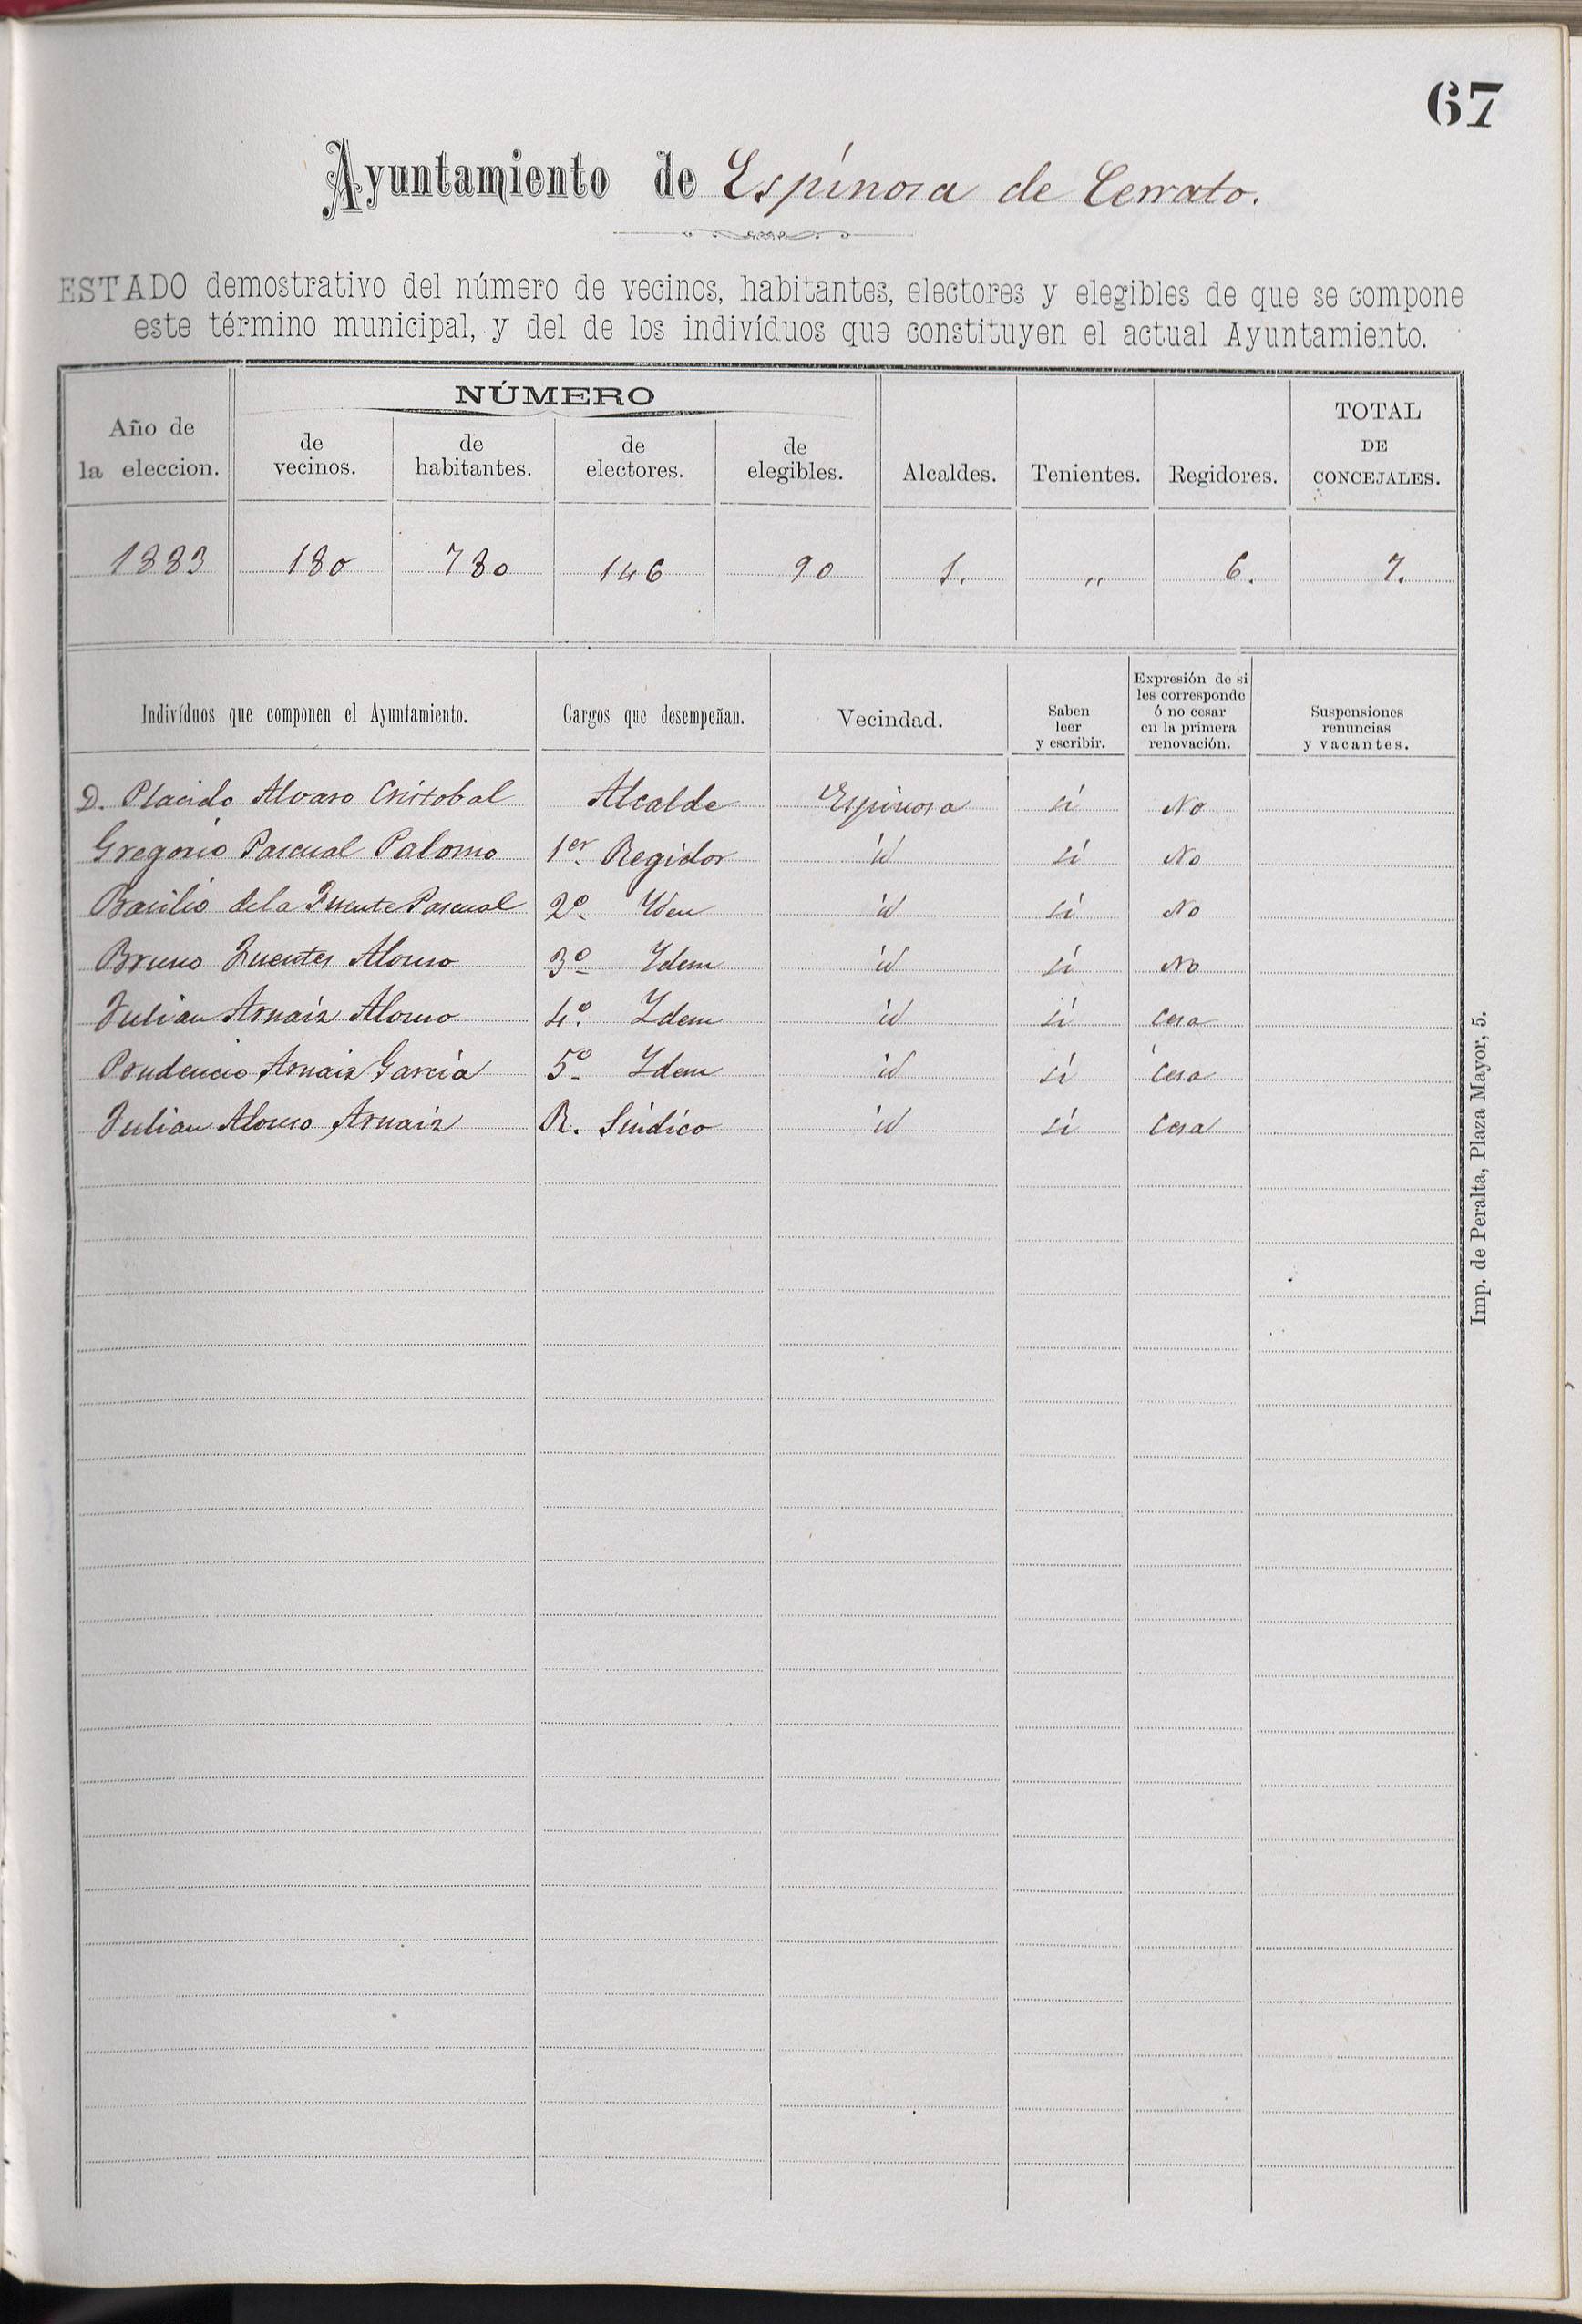 67
Ayuntamiento de Espinosa de Cerrato.
ESTADO demostrativo del número de vecinos, habitantes, electores y elegibles de que se compone
este término municipal, y del de los indivíduos que constituyen el actual Ayuntamiento.
Año de la eleccion. NÚMERO de vecinos. de habitantes. de electores. de elegibles. Alcaldes. Tenientes. Regidores. TOTAL DE CONCEJALES.
1883 180 780 146 90 1. " 6. 7.
Indivíduos que componen el Ayuntamiento. Cargos que desempeñan. Vecindad. Saben leer y escribir. Expresión de si les corresponde ó no cesar en la primera renovación. Suspensiones renuncias y vacantes.
D. Placido Alvaro Cristobal Alcalde Espinosa si No
Gregorio Pascual Palomo 1er Regidor id si No
Basilio de la Fuente Pascual 2º Yden id si No
Bruno Fuentes Alonso 3º Ydem id si No
Julian Arnaiz Alonso 4º Ydem id si Cesa
Prudencio Arnaiz García 5º Ydem id si Cesa
Julian Alonso Arnaiz R. Sindico id si Cesa
Imp. de Peralta, Plaza Mayor, 5.